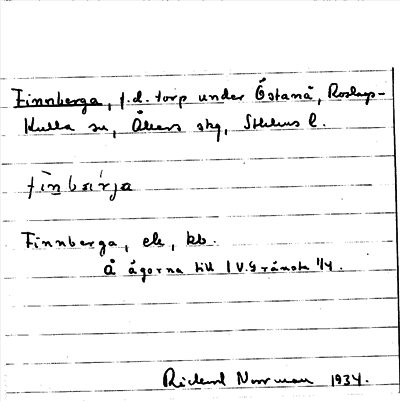 Finnberga, f.d. torp under Östanå, Roslags-
Kulla sn, Åkers skg, Sthlms l.
Finnberga, ek, kb.
å ägorna till
Rickard Norrman 1934.